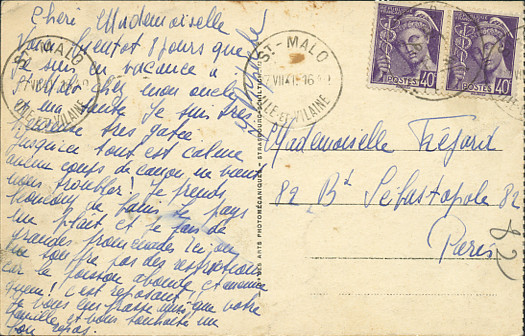 Chère Mademoiselle
Voici bientôt 8 jours que
je suis en vacance à
St Malo chez mon oncle
et ma tante. Je suis très
heureuse très gatée
jusqu'ici tout est calme
aucun coups de canon ne vient
nous troubler! Je prends
beaucoup de bains le pays
me plait et je fais de
grandes promenades Ici on
ne souffre pas des restrictions
car le poisson abonde et
c'est reposant
je vous embrasse ainsi que votre
famille et vous souhaite un
bon repos.
ST-MALO
ILLE-ET-VILAINE
ST-MALO
VII 41 16
ILLE-ET-VILAINE
POSTES 40
POSTES 40
Mademoiselle Frégard
82 Bd Sébastopole 82
Paris
82
DES ARTS PHOTOMÉCANIQUES - STRASBOURG-SCHILTIGHEIM